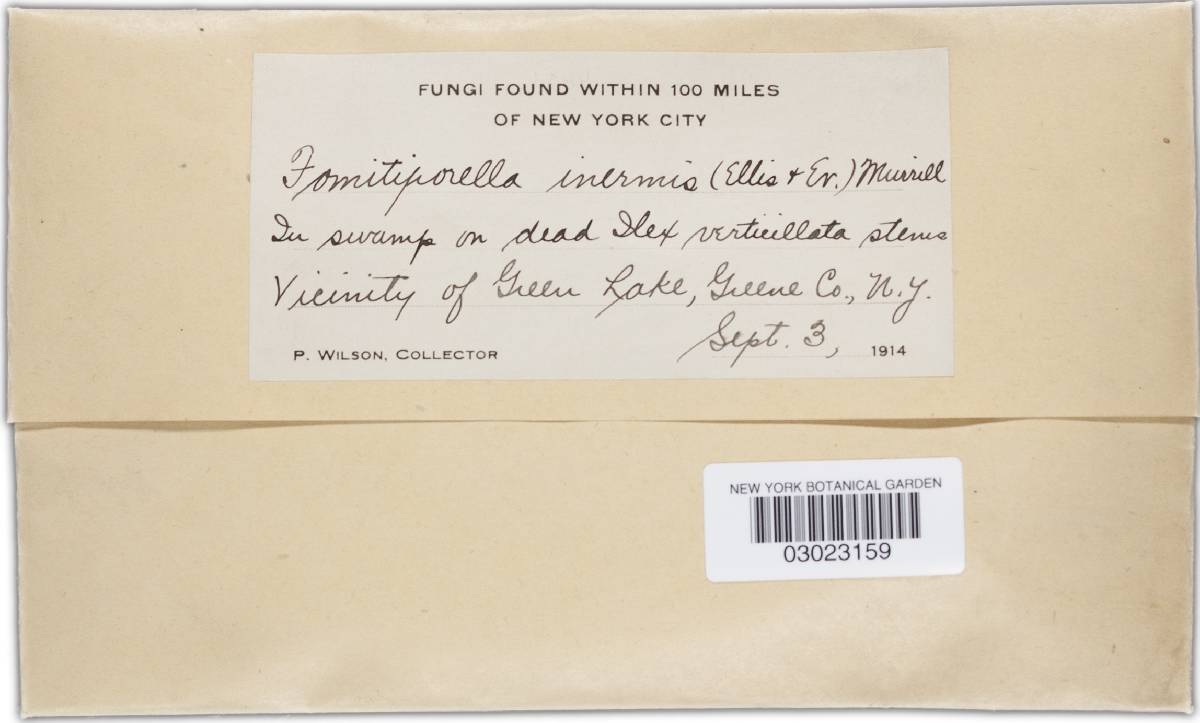 FUNGI FOUND WITHIN 100 MILES
OF NEW YORK CITY
Fomitiporella inermis (Ellis & Ev.) Murrill
In swamp on dead Ilex verticillata stems
Vicinity of Green Lake, Greene Co., N.Y.
Sept. 3, 1914
P. WILSON, COLLECTOR
NEW YORK BOTANICAL GARDEN
03023159